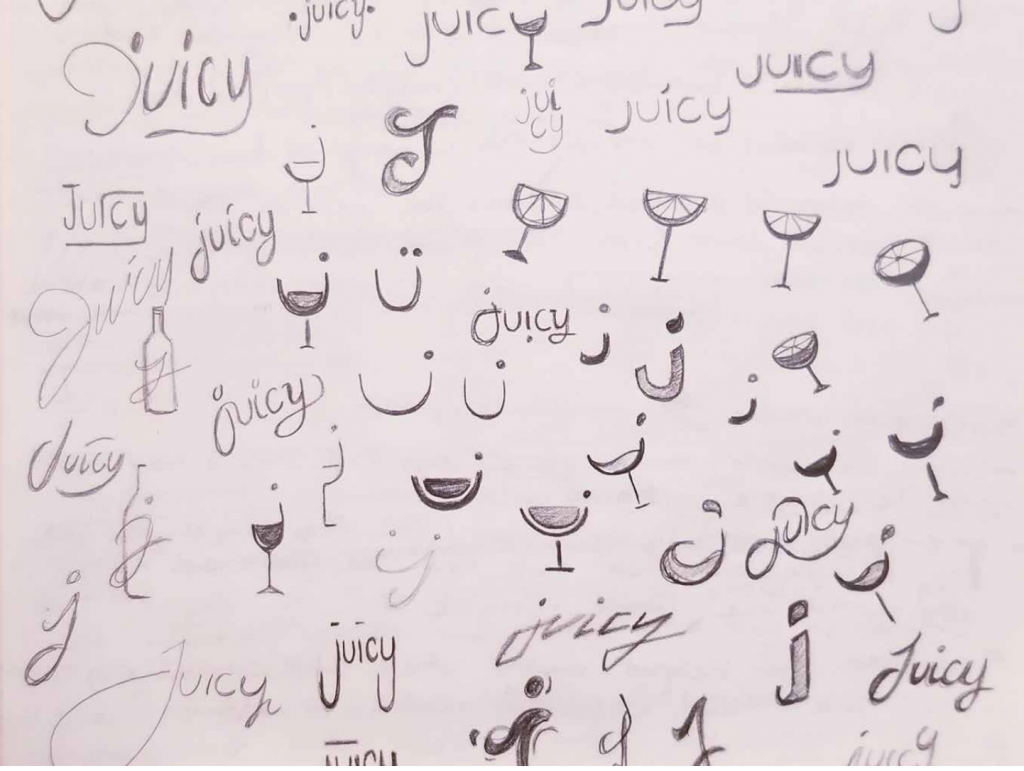 juicy
juicy
juicy
juicy
jui
cy
juicy
juicy
juicy
J
Juicy
juicy
juicy
ü
juicy
j
j
j
juicy
juicy
j
juicy
j
juicy
juicy
juicy
j
juicy
Juicy
juicy
j
juicy